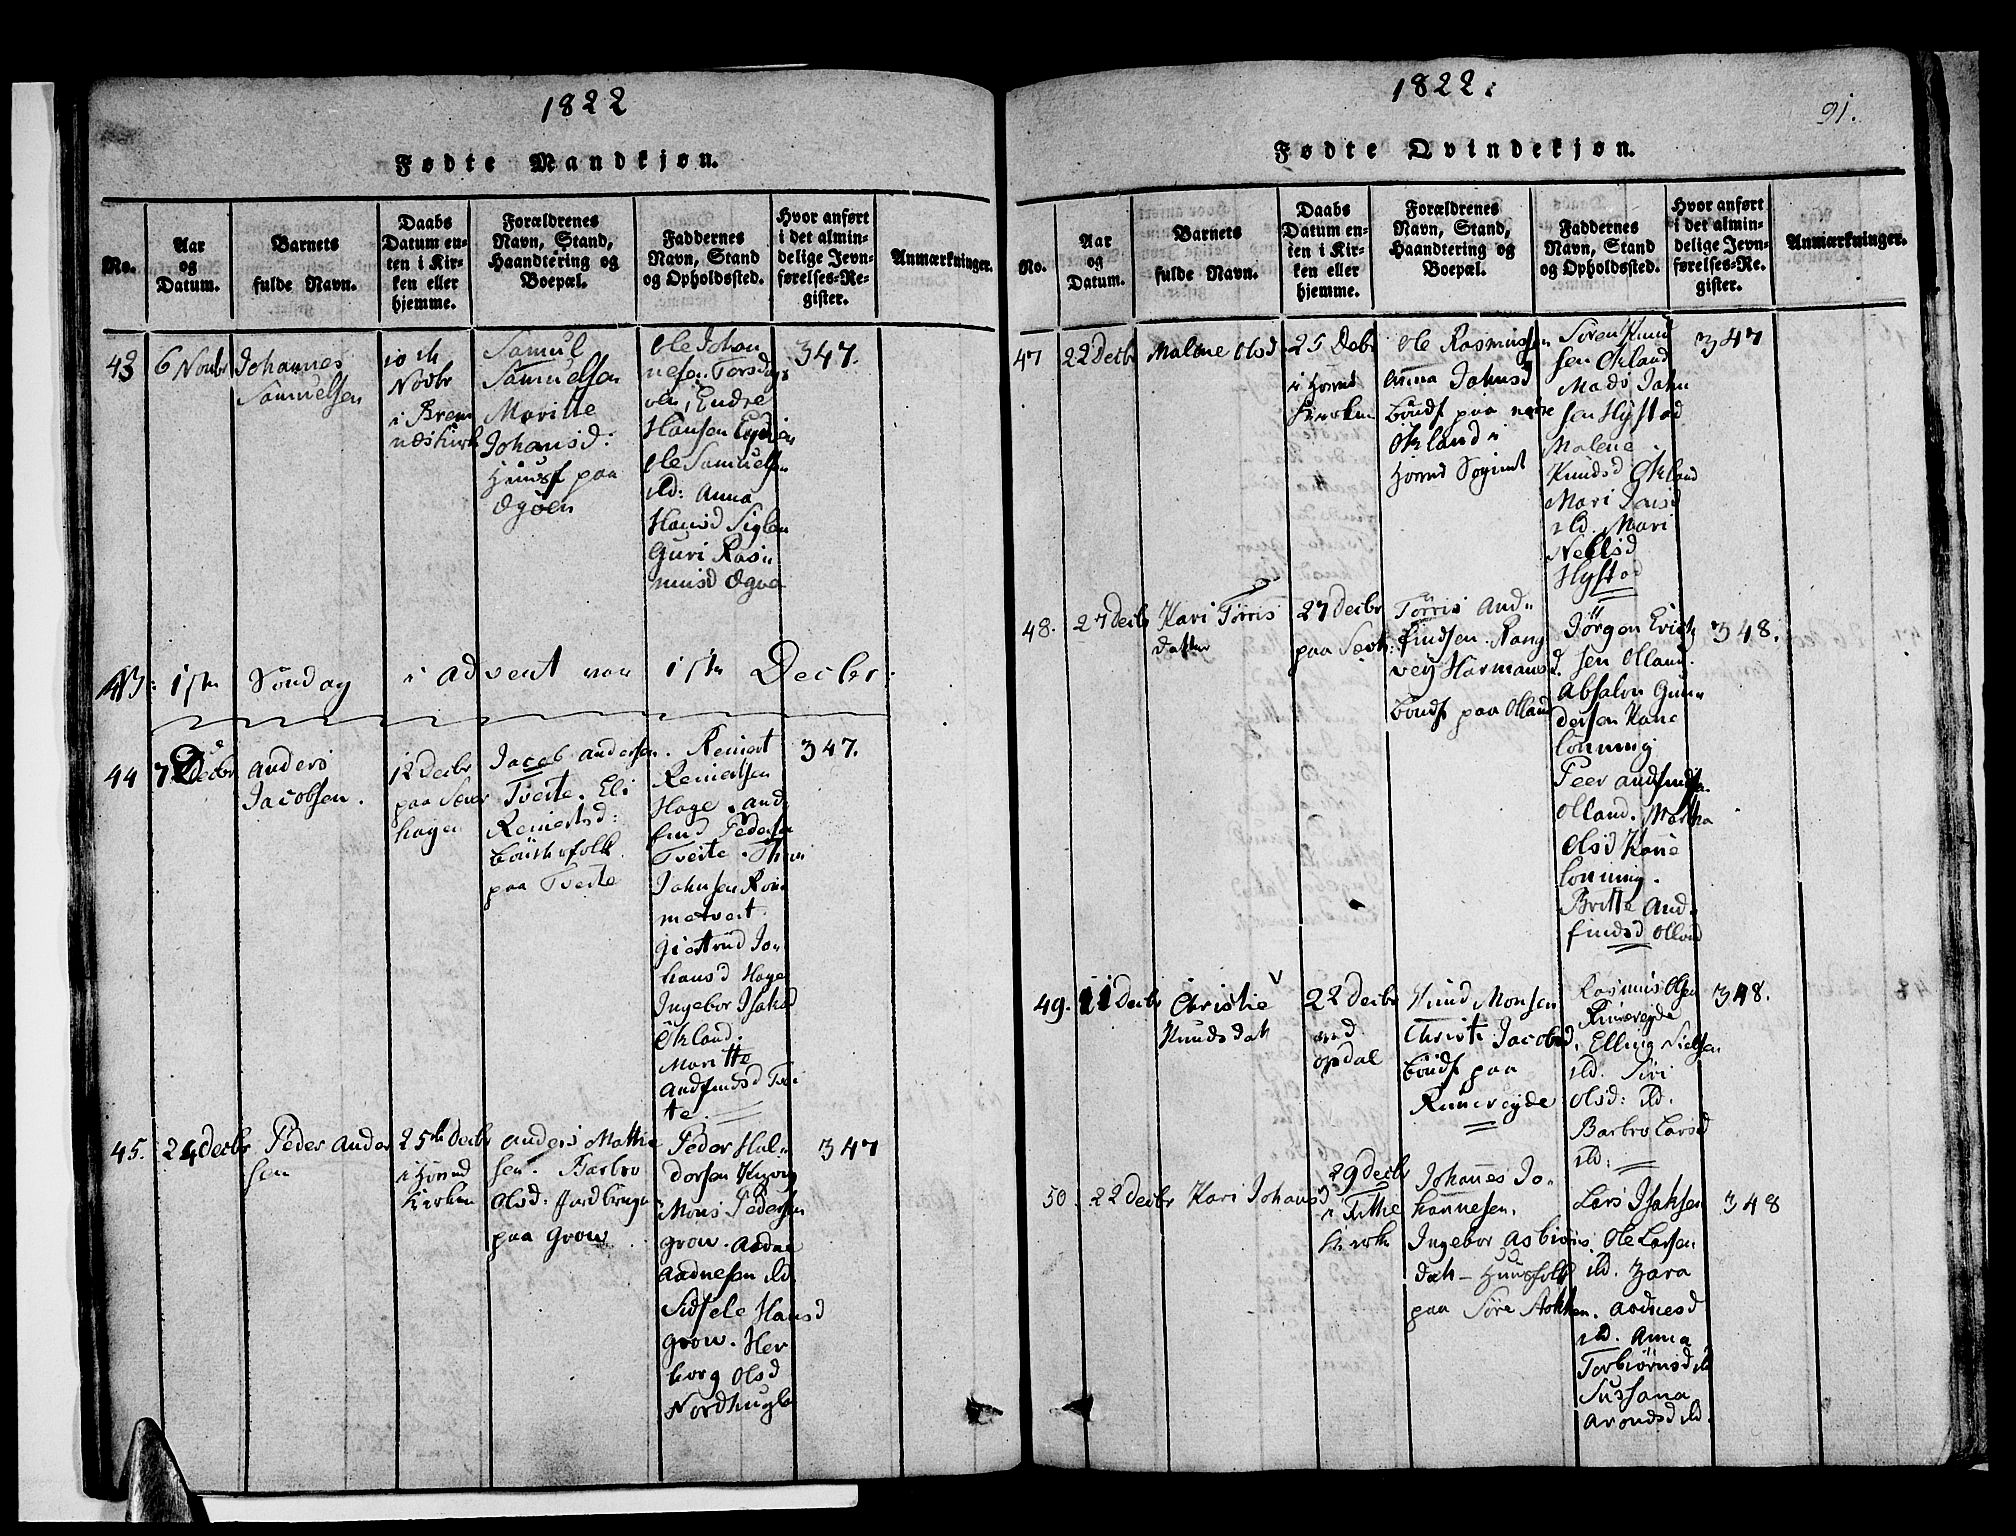 1822
Fødte Mandkjøn.
No.
Aar
og
Datum.
Barnets
fulde Navn.
Daabs
Datum en-
ten i Kir-
ken eller
hjemme.
Forældrenes
Navn, Stand,
Haandtering og
Boepæl.
Faddernes
Navn, Stand
og Opholdssted.
Hvor anført
i det almin-
delige Jevn-
førelses-Re-
gister.
Anmærkninger.
43
6 Novbr
Johannes
Samuelsen
10 de
Novbr
i Brem
næs Kirk
Samul
Samuelsen
Maritte
Johansd:
Huusf paa
Øgöen
Ole Johan
nesen Torsdag
Endre
Hansen
Ole Samuelsen
ild: Anna
Hansd Siglen
Guri Ras:
musd Øgöe
347.
NB: 1ste Söndag i advent var 1ste Decbr:
44
7 Decbr
Anders
Jacobsen.
12 Decbr
paa Sæver
hagen
Jacob Andersen.
Tveite. Eli
Reinertsd:
bönderfolk
paa Tveite
Reinert
Reinertsen
Hage. And
find Pedersen
Tveite.
Johnsen Rom
metveit.
Giertrud Jo
hansd Hage
Ingebor Isaksd
Økland.
Maritte
Andfindsd Tvei
te.
347.
45.
24 Decbr
Peder Ander
sen
25de Decbr
i Horned
Kirken
Anders Mathie
sen. Barbro
Olsd: Jordbruger
paa Grow
Peder Hal-
dorsen
Mons Pedersen
Grow. Andae
Aadnesen ild
Sidsele Hansd
Grow. Her
borg Olsd
Nordhugle
347
1822.
91.
Fødte Qvindekjøn.
No.
Aar
og
Datum.
Barnets
fulde Navn.
Daabs
Datum en-
ten i Kir-
ken eller
hjemme.
Forældrenes
Navn, Stand,
Haandtering og
Boepæl.
Faddernes
Navn, Stand
og Opholdssted.
Hvor anført
i det almin-
delige Jevn-
førelses-Re-
gister.
Anmærkninger.
47
22 Decbr
Malene Olsd
25 Debr
i Horned
Kirken
Ole Rasmussen
Anna Johnsd
böndf paa nære
Økland i
Horned Sogned
Sören Knud
sen Økland
Mads John
sen Hystad
Malene
Knudsd Økland
Mari Jensd
ild. Mari
Nellsd
Hystad
347
48.
27 Decbr
Kari Törris
datter
27 Decbr
paa Sæv:
Törris And-
findsen. Rang
vey Harmansd.
böndf paa Olland
Jörgen Erick
sen Olland.
Absalon Gun-
dersen Kane
lönning
Peer Andfindsen
Olland. Martha
Olsd Kane
lonning.
Britte And-
findsd Olland
348.
49.
11 Decbr
Christie
Knudsdatt
22 Decbr
ved
Opdal
Knud Monsen
Christi Jacobsd.
böndf paa
Runereyde
Rasmus Olsen
Runereyde
Elling Nielsen
ild. Siri
Olsd: ild.
Barbro Larsd
ild:
348.
50.
22 Decbr
Kari Johansd
29 Decbr
i Fithe
Kirke
Johannes Jo-
hannesen.
Ingebor Asbiörns
datt- Huusfolk
paa Söre
Lars Isaksen
Ole Larsen
ild. Zara
Aadnesd
ild. Anna
Torbiörnsd ild
Sussana
Arondsd ild.
348